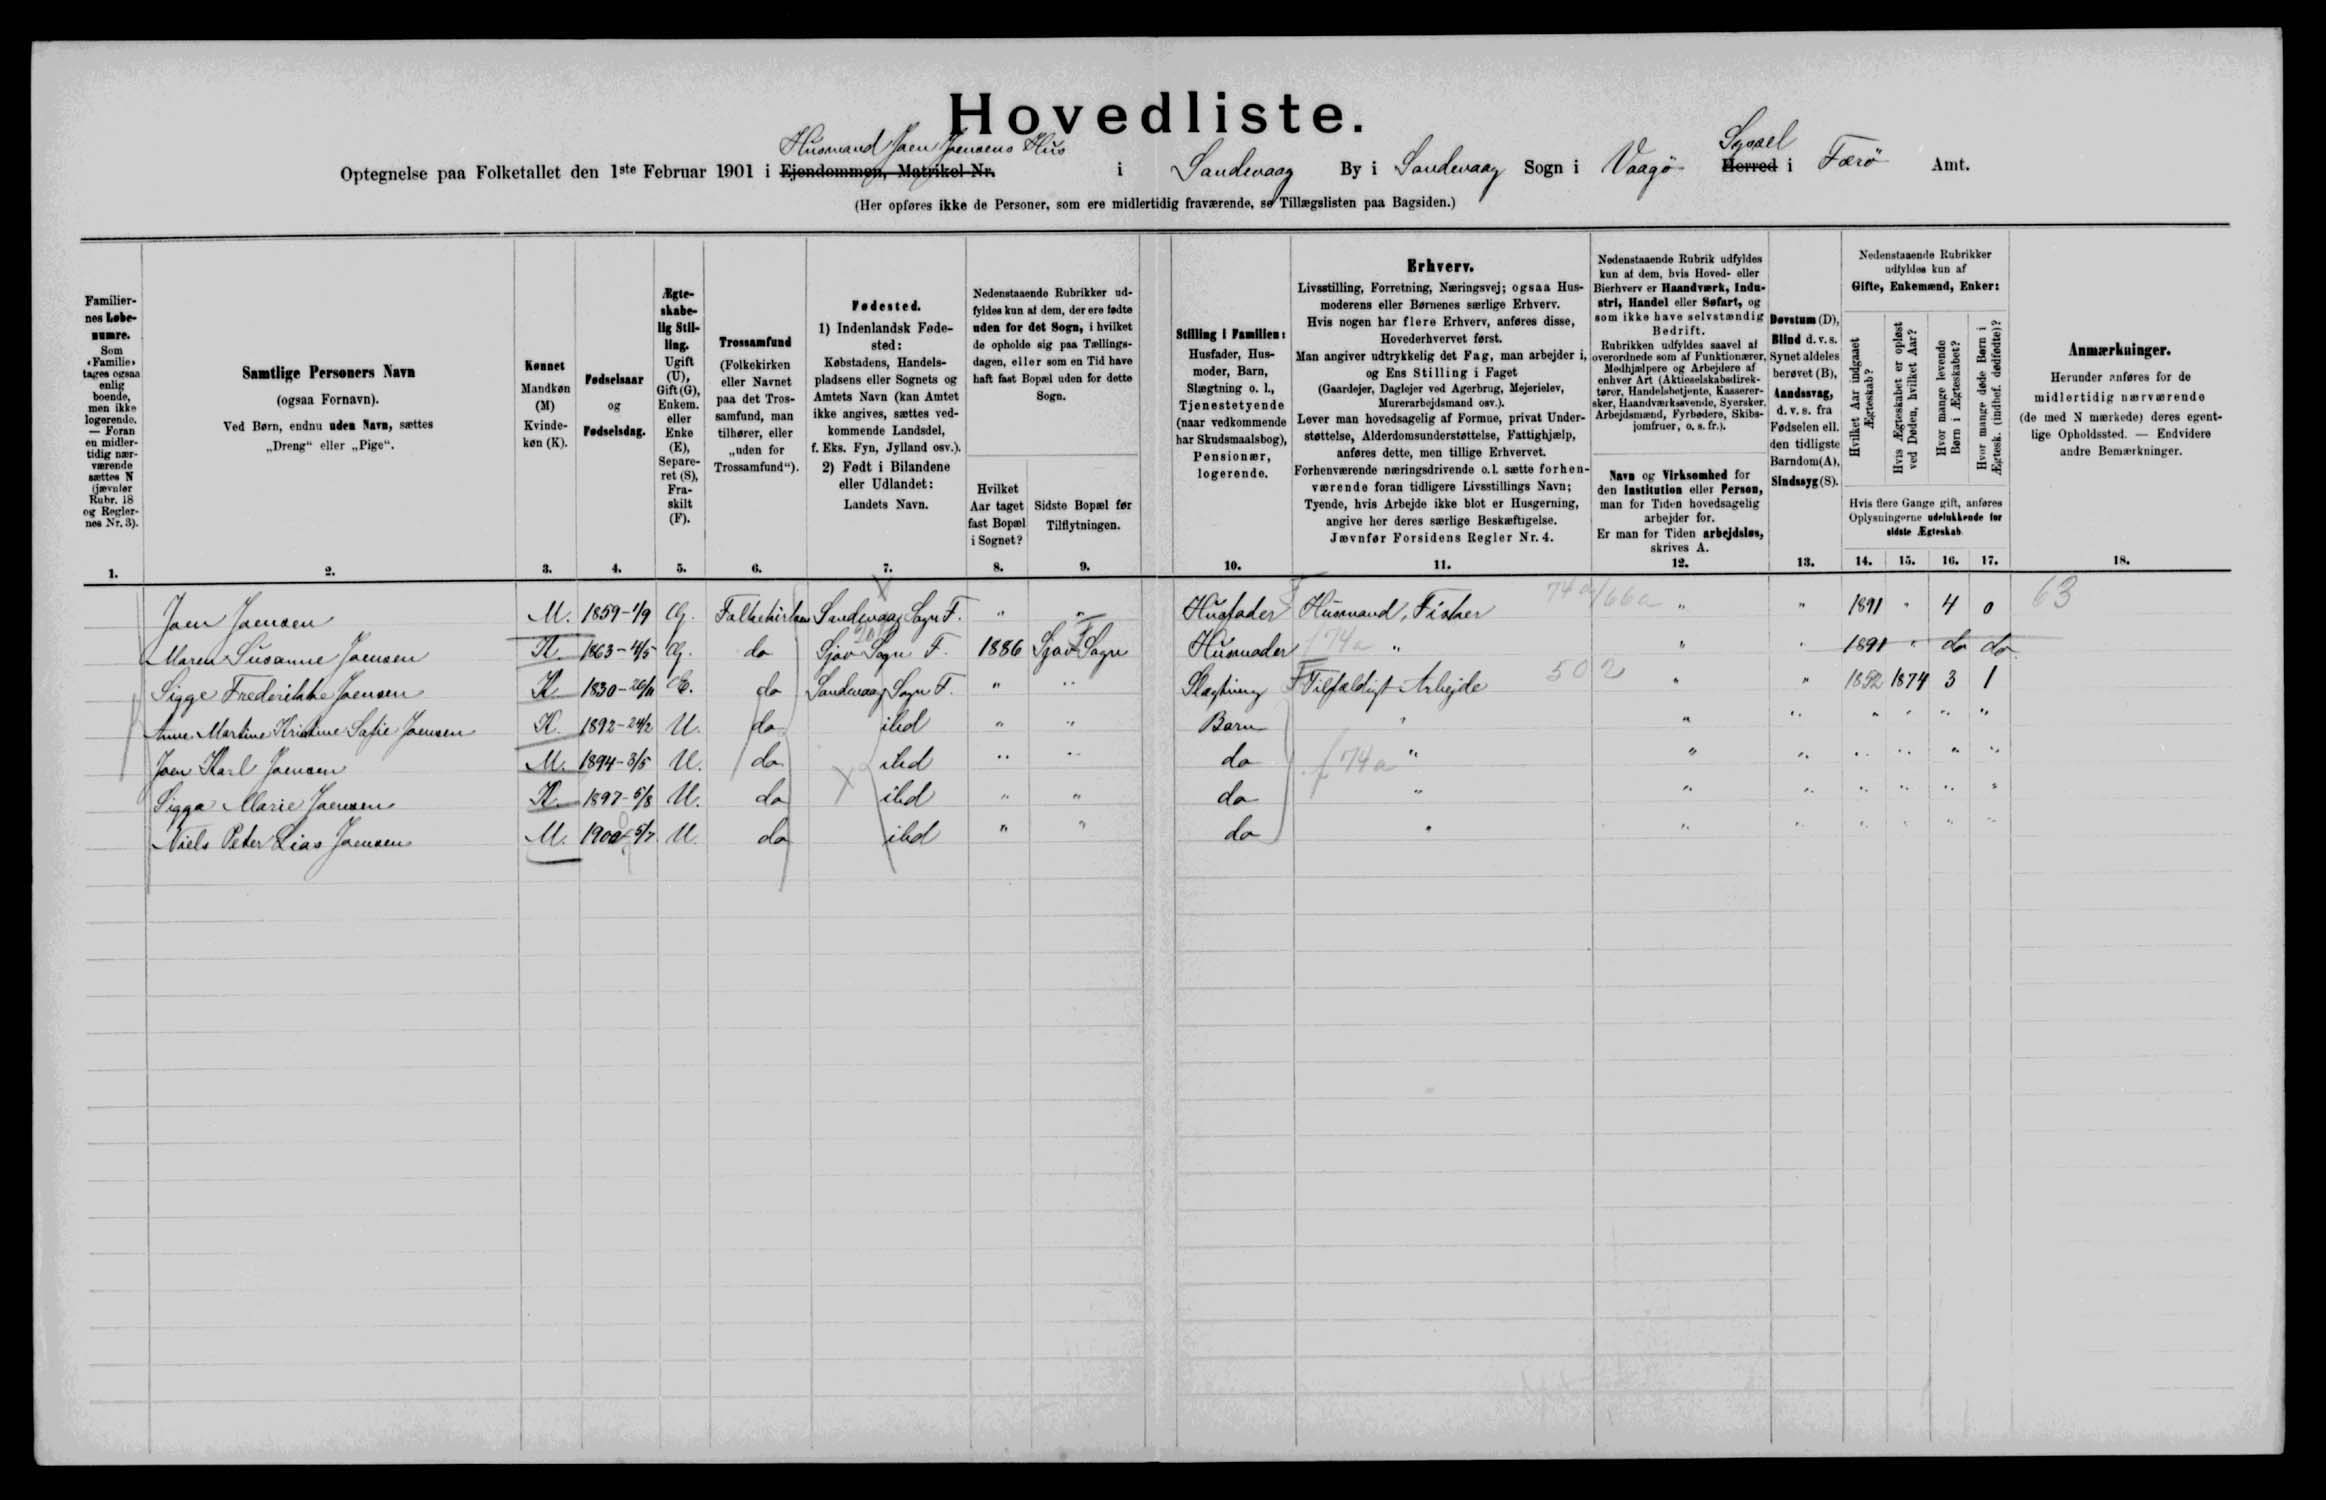 Hovedliste.
Husmand Joen Joensens Hus Syssel
Optegnelse paa Folketallet den 1ste Februar 1901 i Ejendommen, Matrikel-Nr. i Sandevaag By i Sandevaag Sogn i Vaagø Herred i Færø Amt.
(Her opføres ikke de Personer, som ere midlertidig fraværende, se Tillægslisten paa Bagsiden.)
Familier-
nes Løbe-
numre.
Som
«Familie»
tages ogsaa
enlig
boende,
men ikke
logerende.
— Foran
en midler-
tidig nær-
værende
sættes N
(jævnfør
Rubr. 18
og Regler-
nes Nr. 3).
1.
Samtlige Personers Navn
(ogsaa Fornavn).
Ved Børn, endnu uden Navn, sættes
„Dreng“ eller „Pige“.
2.
Kønnet
Mandkøn
(M)
Kvinde-
køn (K).
3.
Fødselsaar
og
Fødselsdag.
4.
Ægte-
skabe-
lig Stil-
ling.
Ugift
(U),
Gift (G),
Enkem.
eller
Enke
(E),
Separe-
ret (S),
Fra-
skilt
(F).
5.
Trossamfund
(Folkekirken
eller Navnet
paa det Tros-
samfund, man
tilhører, eller
„uden for
Trossamfund“).
6.
Fødested.
1) Indenlandsk Føde-
sted:
Købstadens, Handels-
pladsens eller Sognets og
Amtets Navn (kan Amtet
ikke angives, sættes ved-
kommende Landsdel,
f. Eks. Fyn, Jylland osv.).
2) Født i Bilandene
eller Udlandet:
Landets Navn.
7.
Nedenstaaende Rubrikker ud-
fyldes kun af dem, der ere fødte
uden for det Sogn, i hvilket
de opholde sig paa Tællings-
dagen, eller som en Tid have
haft fast Bopæl uden for dette
Sogn.
Hvilket
Aar taget
fast Bopæl
i Sognet?
8.
Sidste Bopæl før
Tilflytningen.
9.
Stilling i Familien:
Husfader, Hus-
moder, Barn,
Slægtning o. l.,
Tjenestetyende
(naar vedkommende
har Skudsmaalsbog),
Pensionær,
logerende.
10.
Erhverv.
Livsstilling, Forretning, Næringsvej; ogsaa Hus-
moderens eller Børnenes særlige Erhverv.
Hvis nogen har flere Erhverv, anføres disse,
Hovederhvervet først.
Man angiver udtrykkelig det Fag, man arbejder i,
og Ens Stilling i Faget
(Gaardejer, Daglejer ved Agerbrug, Mejerielev,
Murerarbejdsmand osv.).
Lever man hovedsagelig af Formue, privat Under-
støttelse, Alderdomsunderstøttelse, Fattighjælp,
anføres dette, men tillige Erhvervet.
Forhenværende næringsdrivende o. l. sætte forhen-
værende foran tidligere Livsstillings Navn;
Tyende, hvis Arbejde ikke blot er Husgerning,
angive her deres særlige Beskæftigelse.
Jævnfør Forsidens Regler Nr. 4.
11.
Nedenstaaende Rubrik udfyldes
kun af dem, hvis Hoved- eller
Bierhverv er Haandværk, Indu-
stri, Handel eller Søfart, og
som ikke have selvstændig
Bedrift.
Rubrikken udfyldes saavel af
overordnede som af Funktionærer,
Medhjælpere og Arbejdere af
enhver Art (Aktieselskabsdirek-
tører, Handelsbetjente, Kasserer-
sker, Haandværkssvende, Syersker,
Arbejdsmænd, Fyrbødere, Skibs-
jomfruer, o. s. fr.).
Navn og Virksomhed for
den Institution eller Person,
man for Tiden hovedsagelig
arbejder for.
Er man for Tiden arbejdsløs,
skrives A.
12.
Døvstum (D),
Blind d. v. s.
Synet aldeles
berøvet (B),
Aandssvag,
d. v. s. fra
Fødselen ell.
den tidligste
Barndom (A),
Sindssyg (S).
13.
Nedenstaaende Rubrikker
udfyldes kun af
Gifte, Enkemænd, Enker:
Hvilket Aar indgaaet
Ægteskab?
Hvis Ægteskabet er opløst
ved Døden, hvilket Aar?
Hvor mange levende
Børn i Ægteskabet?
Hvor mange døde Børn i
Ægtesk. (indbef. dødfødte)?
Hvis flere Gange gift, anføres
Oplysningerne udelukkende for
sidste Ægteskab
14. 15. 16. 17.
Anmærkninger.
Herunder anføres for de
midlertidig nærværende
(de med N mærkede) deres egent-
lige Opholdssted. — Endvidere
andre Bemærkninger.
18.
Joen Joensen M. 1859-1/9 G. Folkekirken Sandevaag Sogn F. " " Husfader Husmand, Fisker 74a/66a " " 1891 " 4 0 63
Maren Susanne Joensen K. 1863-4/5 G. do Sjov Sogn F. 1886 Sjov Sogn Husmoder 74a " " " 1891 " do do
Sigge Frederikke Joensen K. 1830-26/11 E. do Sandevaag Sogn F. " " Slægtning F Tilfældigt Arbejde 502 " " 1852 1874 3 1
Anne Martine Kristine Sofie Joensen K. 1892-24/2 U. do ibd " " Barn " " " " " " "
Joen Karl Joensen M. 1894-3/5 U. do ibd " " do 74a " " " " " " "
Sigga Marie Joensen K. 1897-5/8 U. do ibd " " do " " " " " " "
Niels Peter Lias Joensen M. 1900-5/7 U. do ibd " " do " " " " " " "